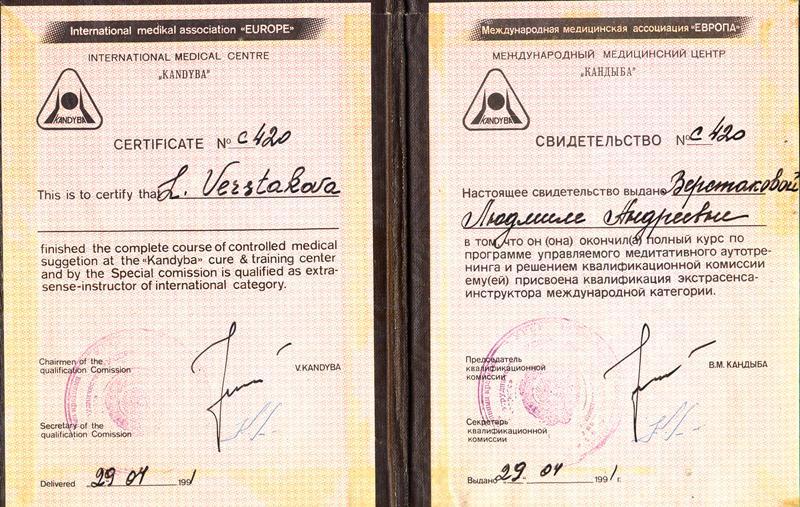 International medikal association «EUROPE»
INTERNATIONAL MEDICAL CENTRE
„KANDYBA”
KANDYBA
CERTIFICATE № C 420
This is to certify that L. Verstakova
finished the complete course of controlled medical
suggetion at the «Kandyba» cure & training center
and by the Special comission is qualified as extra-
sense-instructor of international category.
Chairmen of the
qualification Comission
V.KANDYBA
Secretary of the
qualification Comission
Delivered 29 04 1991
Международная медицинская ассоциация «ЕВРОПА»
МЕЖДУНАРОДНЫЙ МЕДИЦИНСКИЙ ЦЕНТР
„КАНДЫБА”
KANDYBA
СВИДЕТЕЛЬСТВО № C 420
Настоящее свидетельство выдано Верстаковой
Людмиле Андреевне
в том, что он (она) окончил(а) полный курс по
программе управляемого медитативного аутотре-
нинга и решением квалификационной комиссии
ему(ей) присвоена квалификация экстрасенса-
инструктора международной категории.
Председатель
квалификационной
комиссии
В.М. КАНДЫБА
Секретарь
квалификационной
комиссии
Выдано 29 04 1991 г.